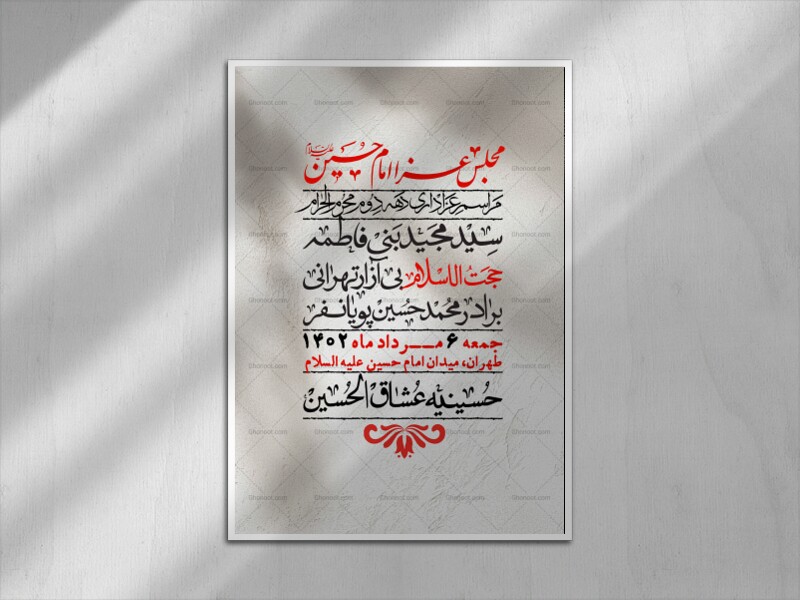 مجلس عزا امام حسین علیه السلام
مراسم عزاداری دهه دوم محرم الحرام
سید مجید بنی فاطمه
حجت الاسلام بی آزار تهرانی
برادر محمد حسین پویانفر
جمعه ۶ مـــرداد ماه ۱۴۰۲
طهران، میدان امام حسین علیه السلام
حسینیه عشاق الحسین
Ghonoot.com